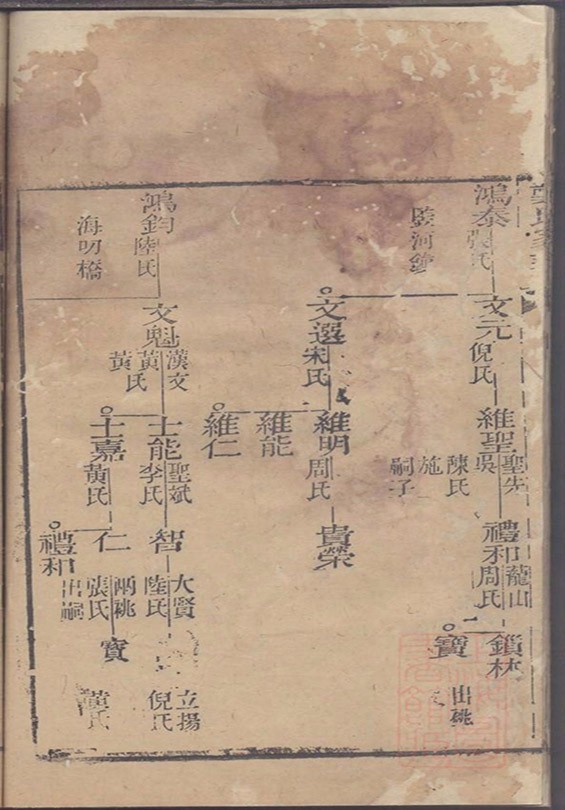 鴻泰
張氏
監河
文元
倪氏
維聖
聖先
吳
陳氏
施
嗣子
禮和
龍山
周氏
鎖林
寶
出祧
文選
宋氏
維明
周氏
維能
維仁
貴榮
鴻鈞
陸氏
海叨橋
文魁
漢文
黃氏
黃
士能
聖斌
李氏
士嘉
黃氏
智
大賢
陸氏
立揚
倪氏
仁
兩祧
張氏
寶
黃氏
禮和
出嗣